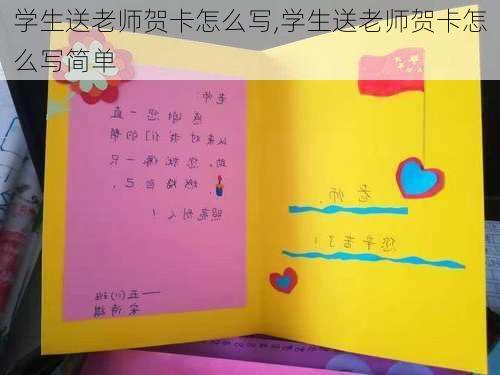 学生送老师贺卡怎么写,学生送老师贺卡怎
么写简单
老师:
感谢您一直
以来对我们的帮
助。您就像一只
燃烧自己,
照亮别人!
——五(1)班
老师,
您辛苦了!